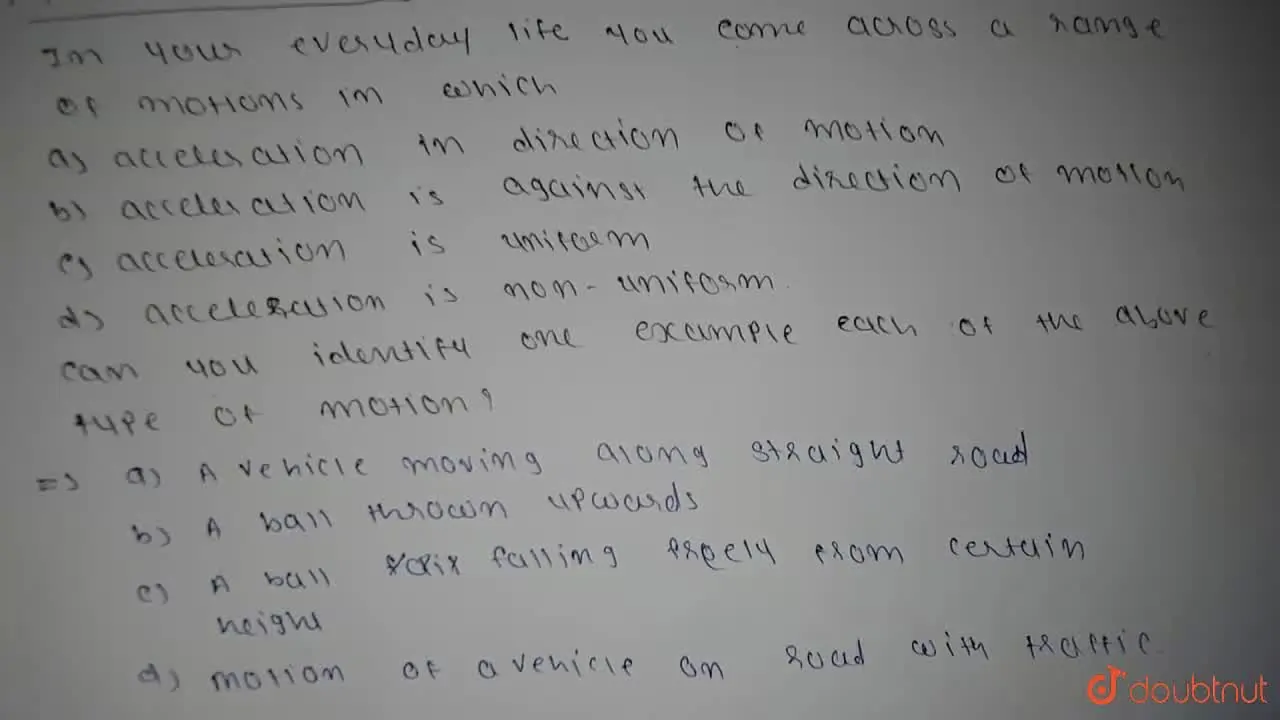 In your everyday life you come across a range
of motions in which
a) acceleration in direction of motion
b) acceleration is against the direction of motion
c) acceleration is uniform
d) acceleration is non-uniform.
can you identify one example each of the above
type of motion?
=> a) A vehicle moving along straight road
b) A ball thrown upwards
c) A ball falling freely from certain
height
d) motion of a vehicle on road with traffic.
doubtnut